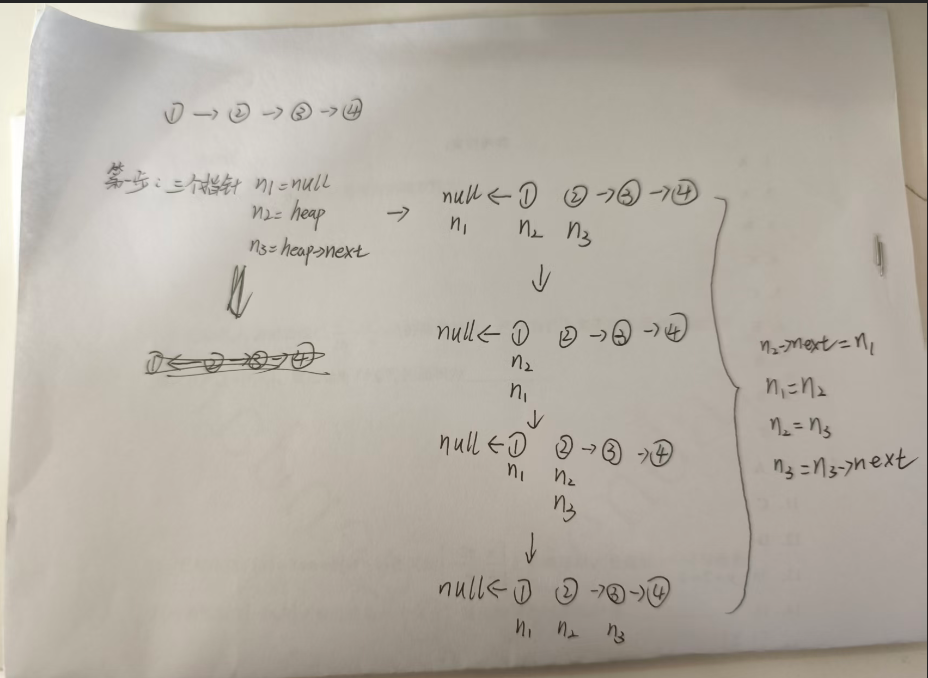 ① → ② → ③ → ④
第一步：三个指针 n1=null
n2=heap
n3=heap->next
→
null ← ① ② → ③ → ④
n1 n2 n3
↓
null ← ① ② → ③ → ④
n2
n1
↓
null ← ① ② → ③ → ④
n1 n2
n3
↓
null ← ① ② → ③ → ④
n1 n2 n3
① ← ② → ③ → ④
n2->next=n1
n1=n2
n2=n3
n3=n3->next